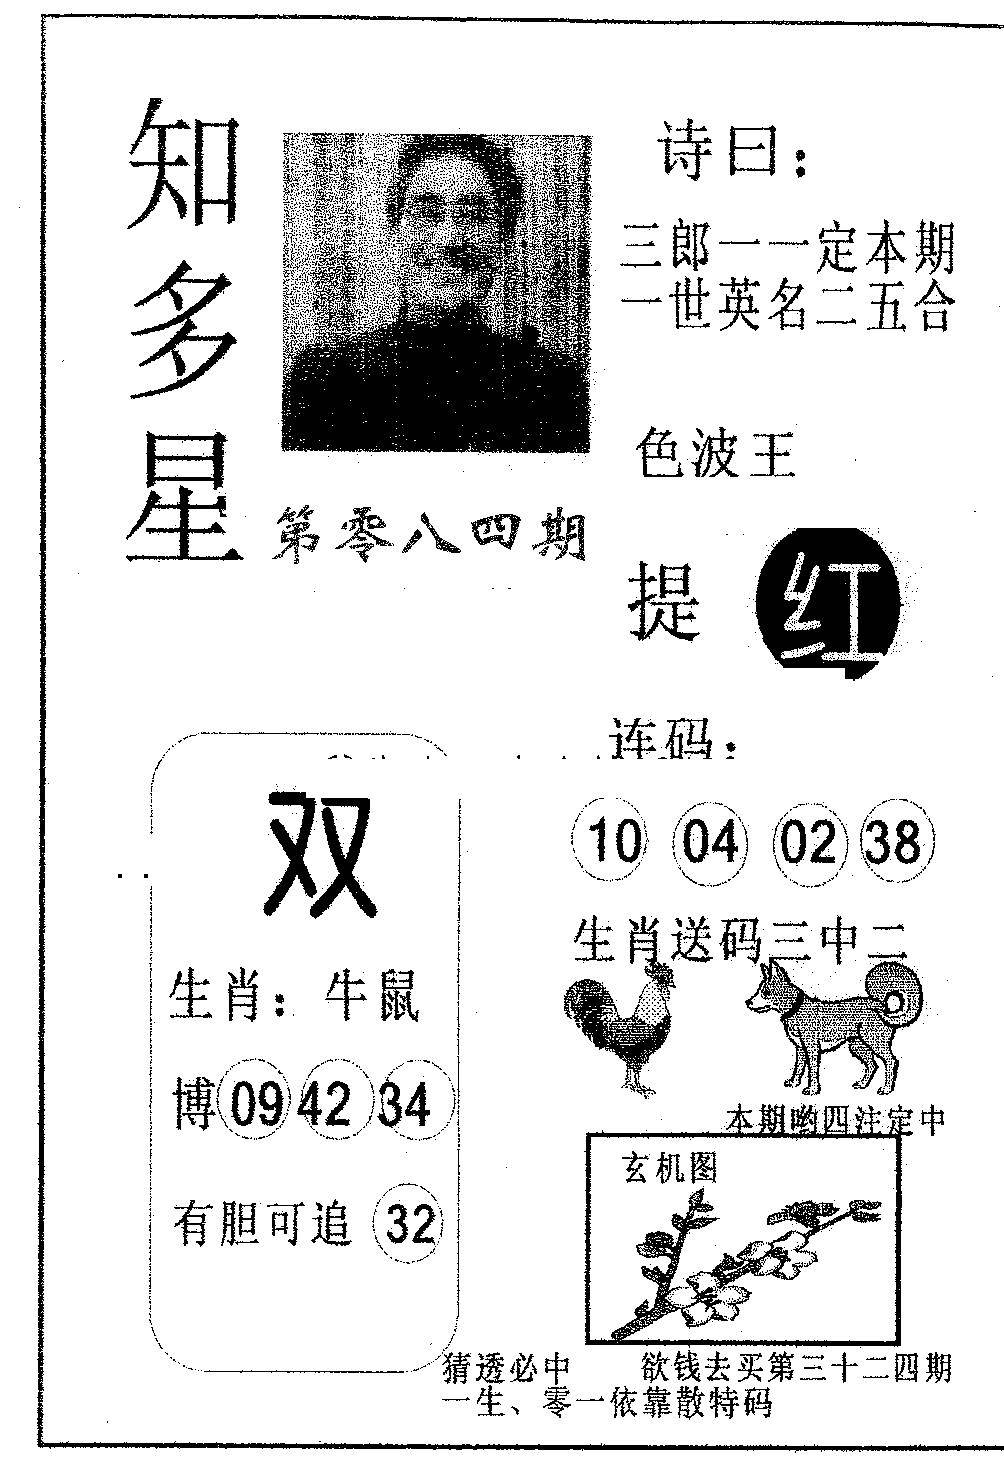 知多星
第零八四期
诗曰：
三郎一一定本期
一世英名二五合
色波王
提 红
连码：
10 04 02 38
生肖送码三中二
本期哟四注定中
双
生肖：牛鼠
博 09 42 34
有胆可追 32
玄机图
猜透必中 欲钱去买第三十二四期
一生、零一依靠散特码